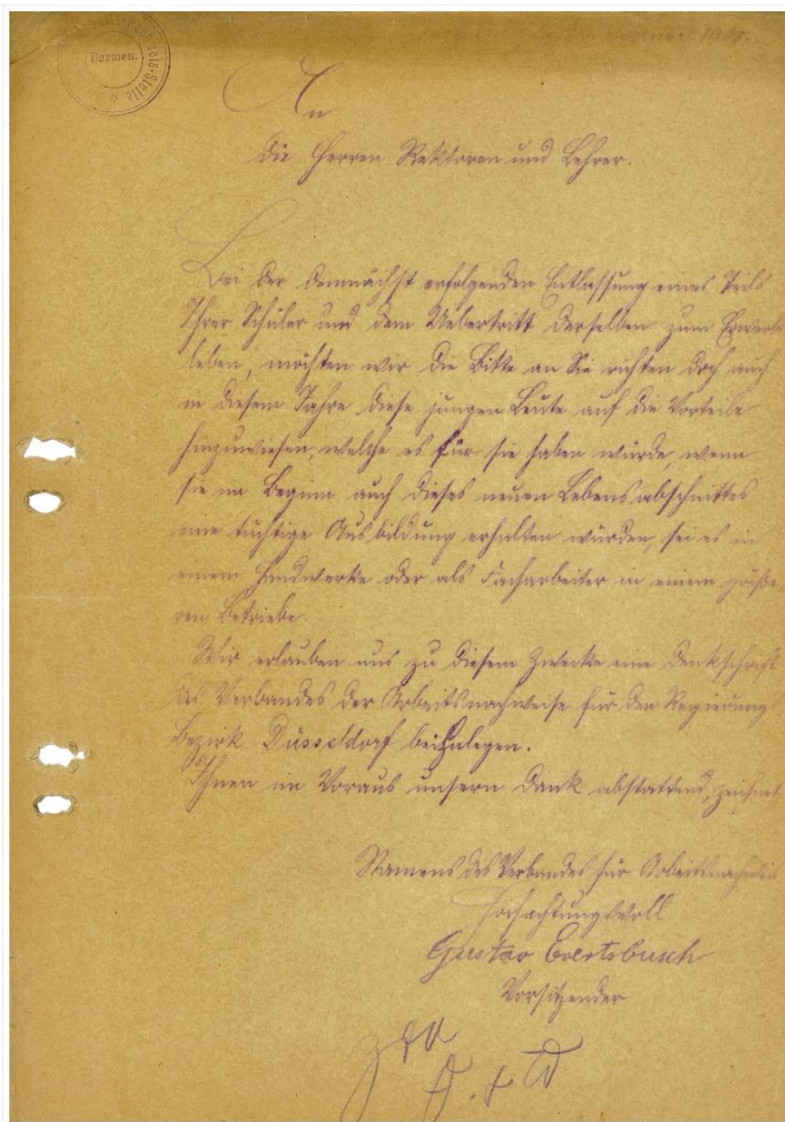 Barmen.
1905.
An
die Herren Rektoren und Lehrer.
Bei der demnächst erfolgenden Entlassung eines Teils
Ihrer Schüler und dem Uebertritt derselben zum Erwerbs
leben, möchten wir die Bitte an Sie richten doch auch
in diesem Jahre diese jungen Leute auf die Vorteile
hinzuweisen, welche es für sie haben würde, wenn
sie im Beginn auch dieses neuen Lebensabschnittes
eine tüchtige Ausbildung erhalten würden, sei es in
einem Handwerke oder als Facharbeiter in einem größe-
ren Betriebe.
Wir erlauben uns zu diesem Zwecke eine Denkschrift
des Verbandes der Arbeitsnachweise für den Regierungs
Bezirk Düsseldorf beizulegen.
Ihnen im Voraus unsern Dank abstattend, zeichnet
Namens des Verbandes für Arbeitsnachweis
Hochachtungsvoll
Gustav Evertsbusch
Vorsitzender